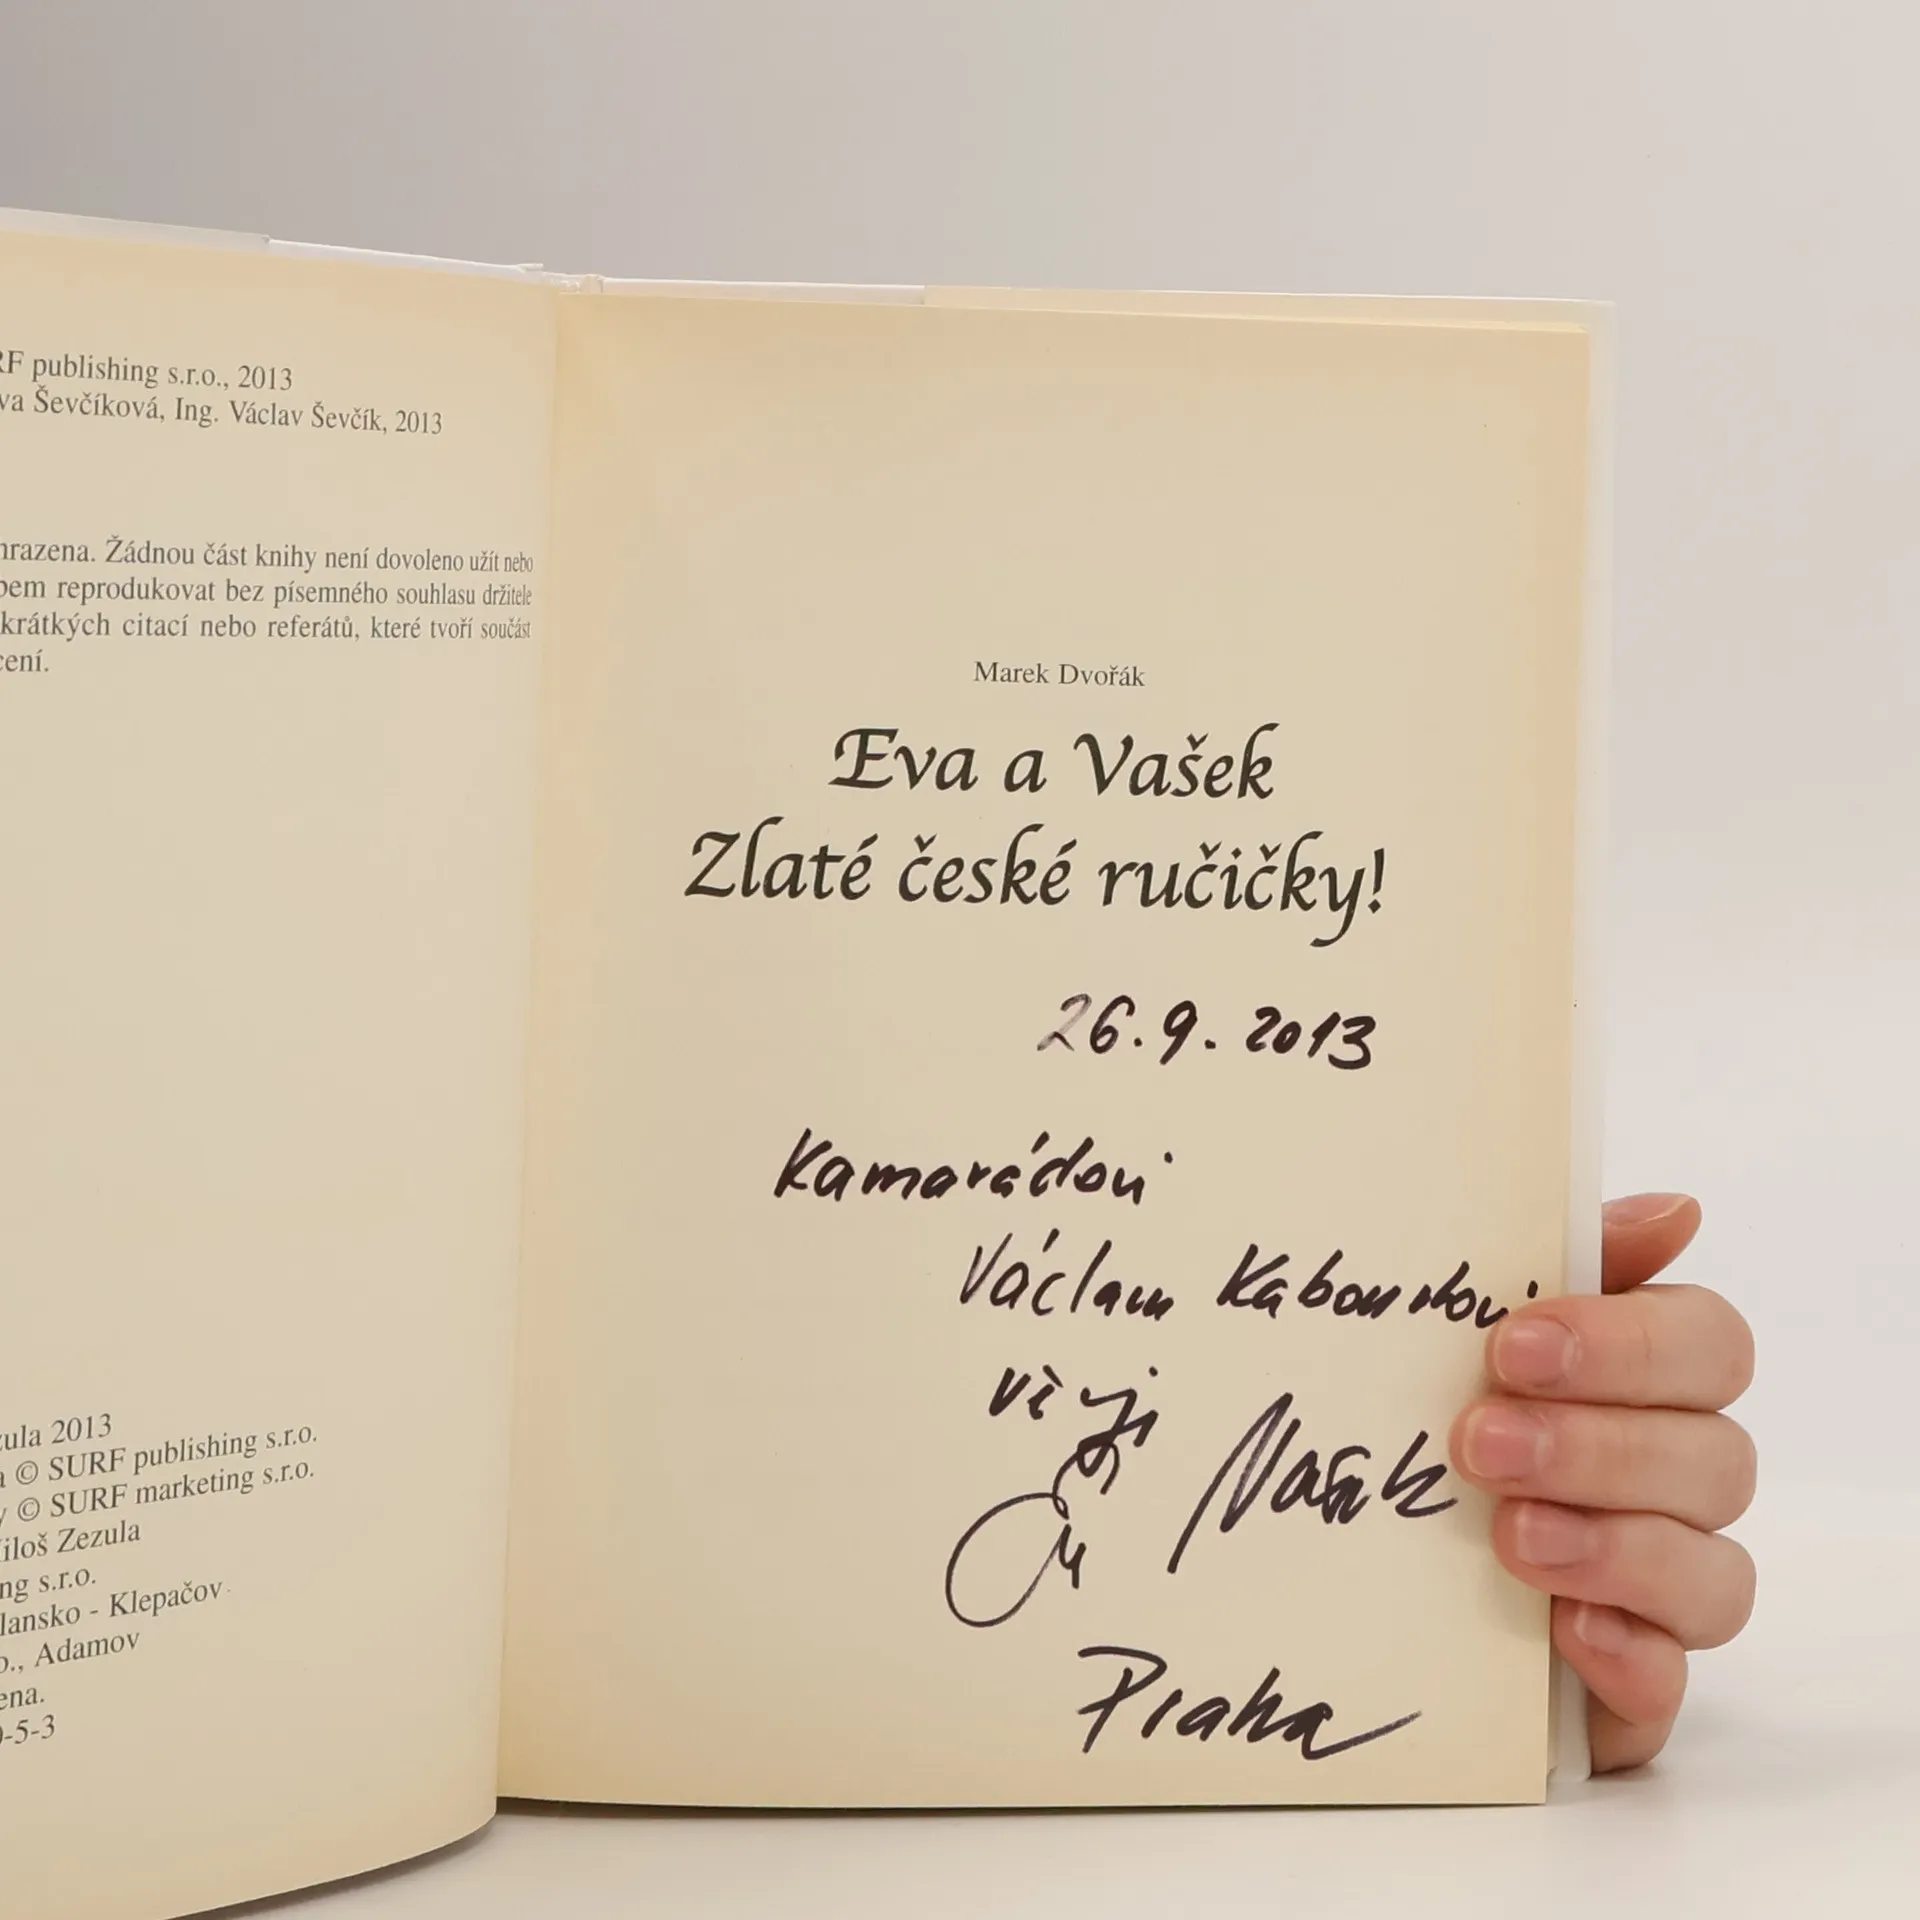 RF publishing s.r.o., 2013
va Ševčíková, Ing. Václav Ševčík, 2013
hrazena. Žádnou část knihy není dovoleno užít nebo
bem reprodukovat bez písemného souhlasu držitele
krátkých citací nebo referátů, které tvoří součást
cení.
zula 2013
a © SURF publishing s.r.o.
y © SURF marketing s.r.o.
iloš Zezula
ng s.r.o.
lansko - Klepačov
o., Adamov
ena.
0-5-3
Marek Dvořák
Eva a Vašek
Zlaté české ručičky!
26.9.2013
Kamarádovi
Václavu
Vašek
Praha